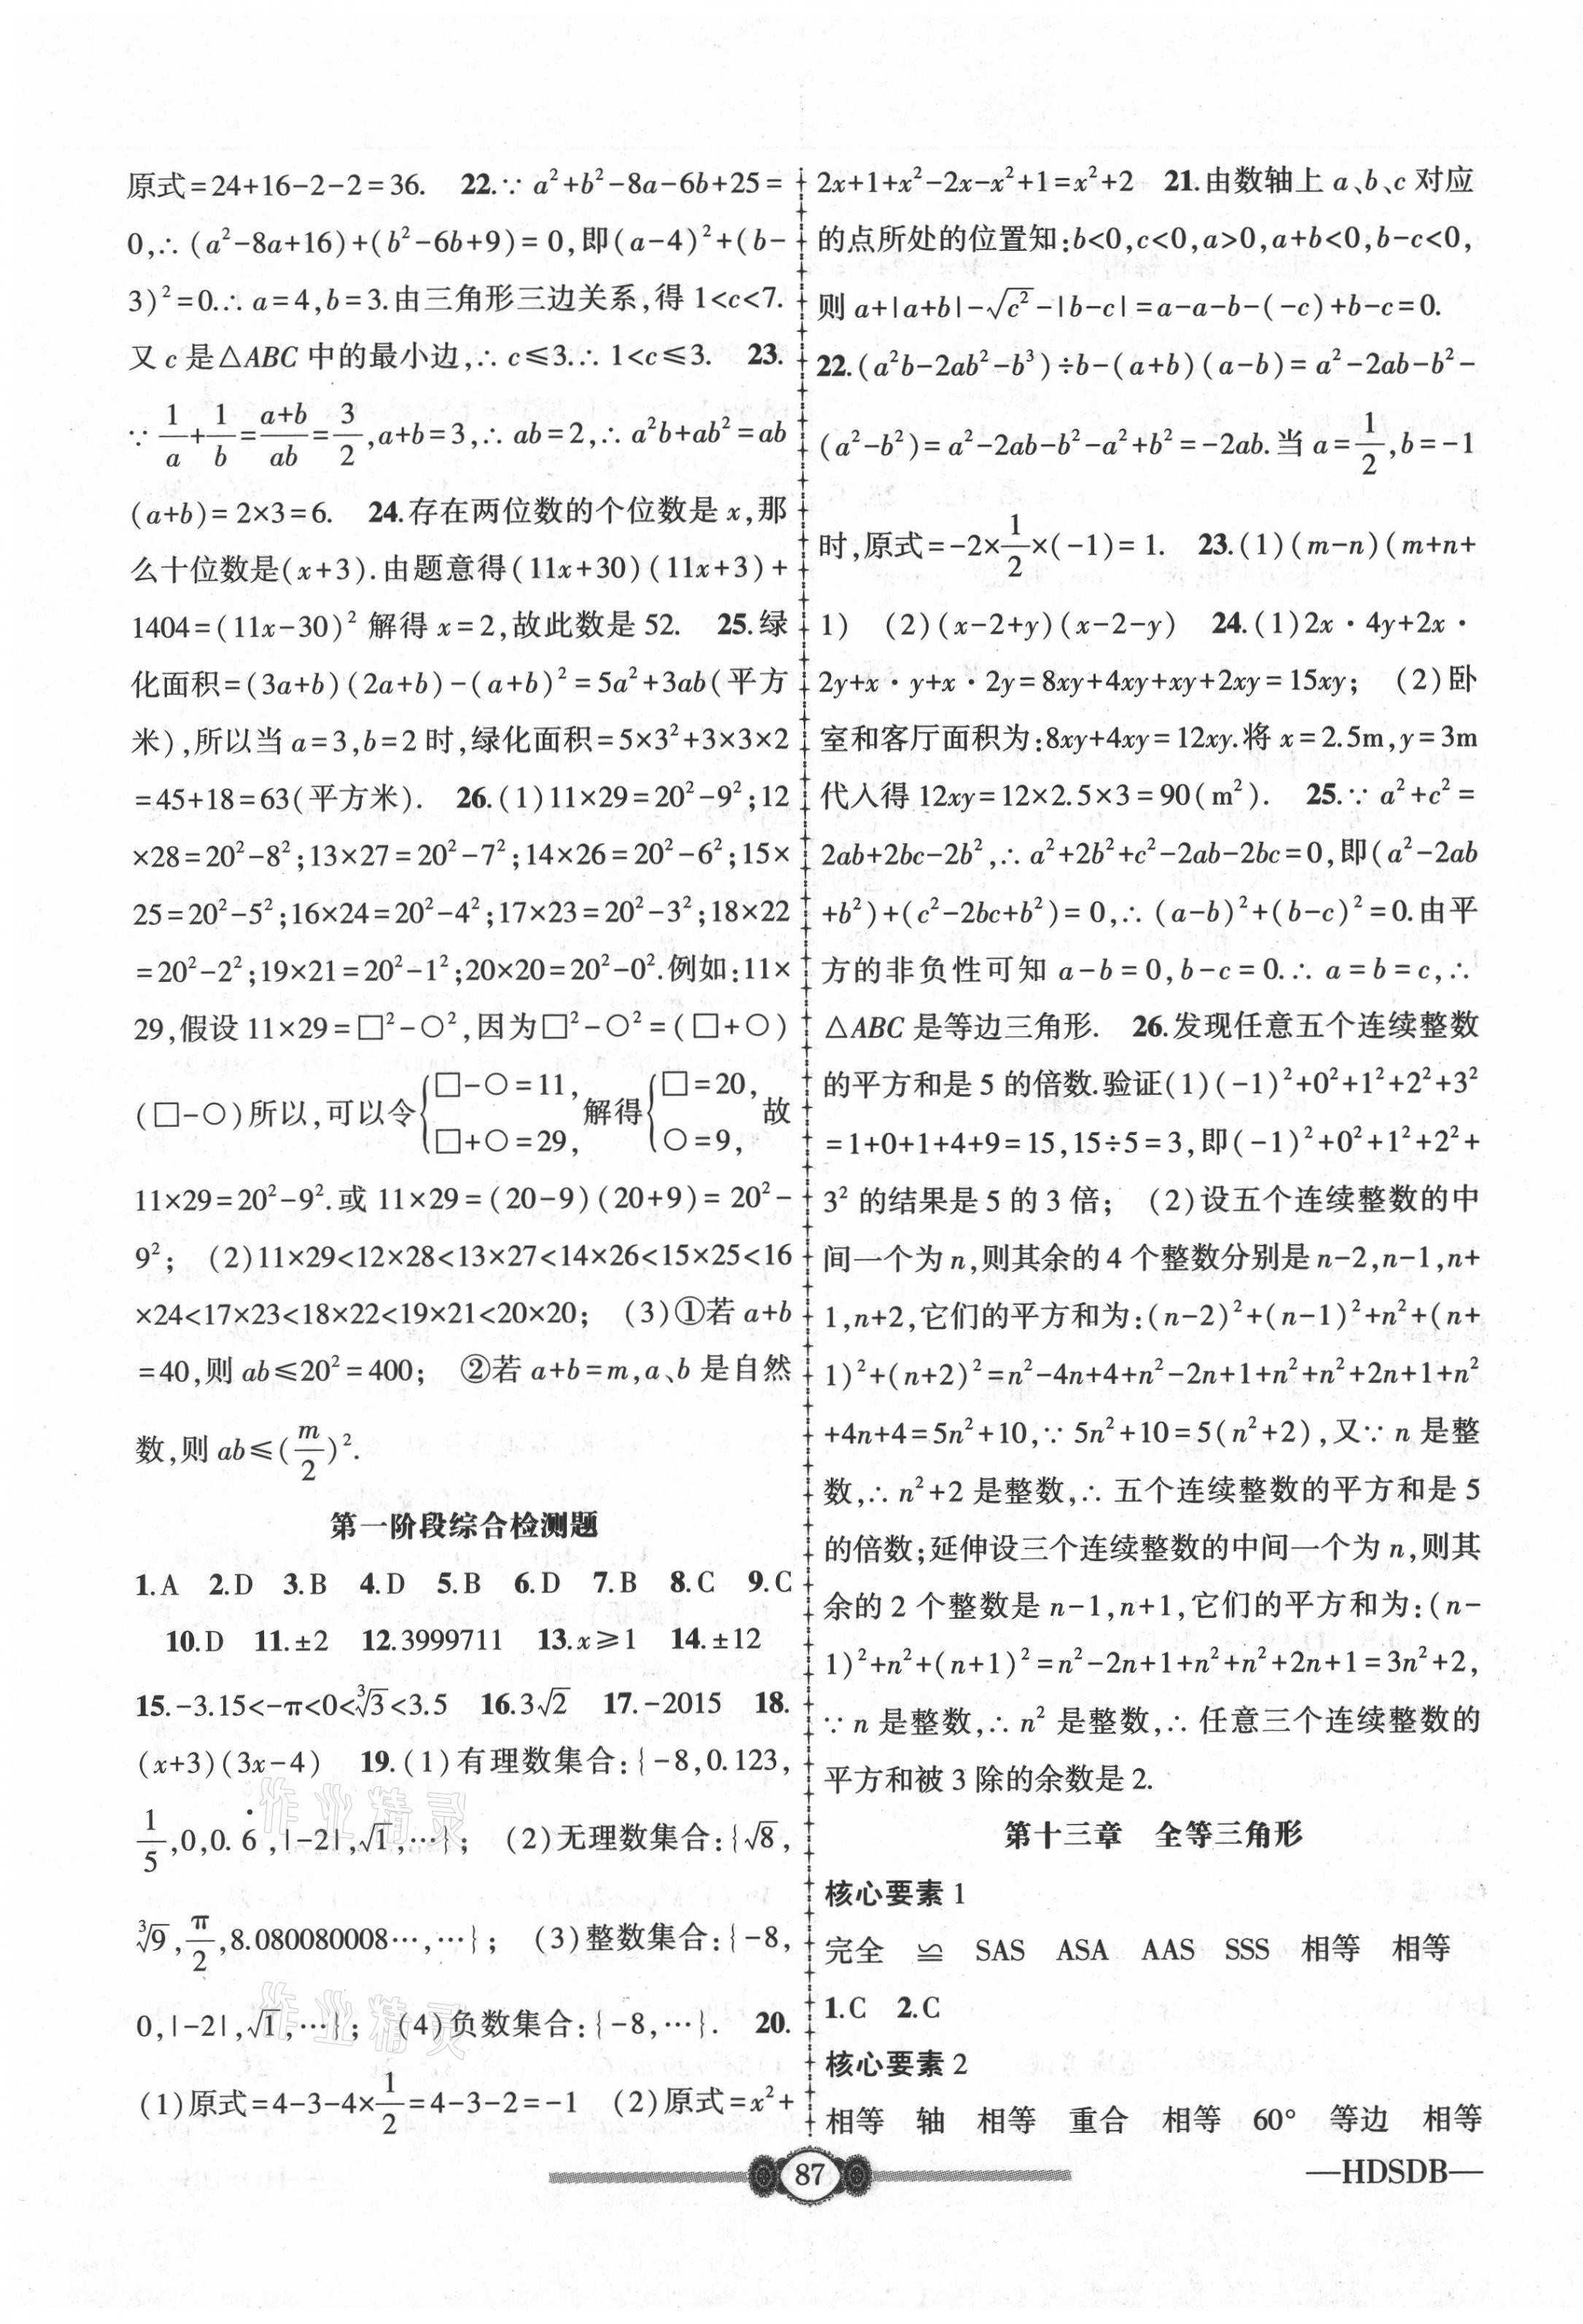 原式=24+16-2-2=36.　22.∵ a²+b²-8a-6b+25=
0,∴ (a²-8a+16)+(b²-6b+9)=0,即(a-4)²+(b-
3)²=0.∴ a=4,b=3.由三角形三边关系,得 1<c<7.
又 c 是△ABC 中的最小边,∴ c≤3.∴ 1<c≤3.　23.
∵ 1/a+1/b=(a+b)/ab=3/2,a+b=3,∴ ab=2,∴ a²b+ab²=ab
(a+b)=2×3=6.　24.存在两位数的个位数是 x,那
么十位数是(x+3).由题意得(11x+30)(11x+3)+
1404=(11x-30)² 解得 x=2,故此数是 52.　25.绿
化面积=(3a+b)(2a+b)-(a+b)²=5a²+3ab(平方
米),所以当 a=3,b=2 时,绿化面积=5×3²+3×3×2
=45+18=63(平方米).　26.(1)11×29=20²-9²;12
×28=20²-8²;13×27=20²-7²;14×26=20²-6²;15×
25=20²-5²;16×24=20²-4²;17×23=20²-3²;18×22
=20²-2²;19×21=20²-1²;20×20=20²-0².例如:11×
29,假设 11×29=□²-○²,因为□²-○²=(□+○)
(□-○)所以,可以令{□-○=11,□+○=29,解得{□=20,○=9,故
11×29=20²-9².或 11×29=(20-9)(20+9)=20²-
9²;　(2)11×29<12×28<13×27<14×26<15×25<16
×24<17×23<18×22<19×21<20×20;　(3)①若 a+b
=40,则 ab≤20²=400;　②若 a+b=m,a、b 是自然
数,则 ab≤(m/2)².
第一阶段综合检测题
1.A　2.D　3.B　4.D　5.B　6.D　7.B　8.C　9.C
10.D　11.±2　12.3999711　13.x≥1　14.±12
15.-3.15<-π<0<∛3<3.5　16.3√2　17.-2015　18.
(x+3)(3x-4)　19.(1)有理数集合:{-8,0.123,
1/5,0,0.6̇,|-2|,√1,…};　(2)无理数集合:{√8,
∛9,π/2,8.080080008…,…};　(3)整数集合:{-8,
0,|-2|,√1,…};　(4)负数集合:{-8,…}.　20.
(1)原式=4-3-4×1/2=4-3-2=-1　(2)原式=x²+
2x+1+x²-2x-x²+1=x²+2　21.由数轴上 a、b、c 对应
的点所处的位置知:b<0,c<0,a>0,a+b<0,b-c<0,
则 a+|a+b|-√c²-|b-c|=a-a-b-(-c)+b-c=0.
22.(a²b-2ab²-b³)÷b-(a+b)(a-b)=a²-2ab-b²-
(a²-b²)=a²-2ab-b²-a²+b²=-2ab.当 a=1/2,b=-1
时,原式=-2×1/2×(-1)=1.　23.(1)(m-n)(m+n+
1)　(2)(x-2+y)(x-2-y)　24.(1)2x·4y+2x·
2y+x·y+x·2y=8xy+4xy+xy+2xy=15xy;　(2)卧
室和客厅面积为:8xy+4xy=12xy.将 x=2.5m,y=3m
代入得 12xy=12×2.5×3=90(m²).　25.∵ a²+c²=
2ab+2bc-2b²,∴ a²+2b²+c²-2ab-2bc=0,即(a²-2ab
+b²)+(c²-2bc+b²)=0,∴ (a-b)²+(b-c)²=0.由平
方的非负性可知 a-b=0,b-c=0.∴ a=b=c,∴
△ABC 是等边三角形.　26.发现任意五个连续整数
的平方和是 5 的倍数.验证(1)(-1)²+0²+1²+2²+3²
=1+0+1+4+9=15,15÷5=3,即(-1)²+0²+1²+2²+
3² 的结果是 5 的 3 倍;　(2)设五个连续整数的中
间一个为 n,则其余的 4 个整数分别是 n-2,n-1,n+
1,n+2,它们的平方和为:(n-2)²+(n-1)²+n²+(n+
1)²+(n+2)²=n²-4n+4+n²-2n+1+n²+n²+2n+1+n²
+4n+4=5n²+10,∵ 5n²+10=5(n²+2),又∵ n 是整
数,∴ n²+2 是整数,∴ 五个连续整数的平方和是 5
的倍数;延伸设三个连续整数的中间一个为 n,则其
余的 2 个整数是 n-1,n+1,它们的平方和为:(n-
1)²+n²+(n+1)²=n²-2n+1+n²+n²+2n+1=3n²+2,
∵ n 是整数,∴ n² 是整数,∴ 任意三个连续整数的
平方和被 3 除的余数是 2.
第十三章　全等三角形
核心要素 1
完全　≌　SAS　ASA　AAS　SSS　相等　相等
1.C　2.C
核心要素 2
相等　轴　相等　重合　相等　60°　等边　相等
87
—HDSDB—
作业精灵
作业精灵